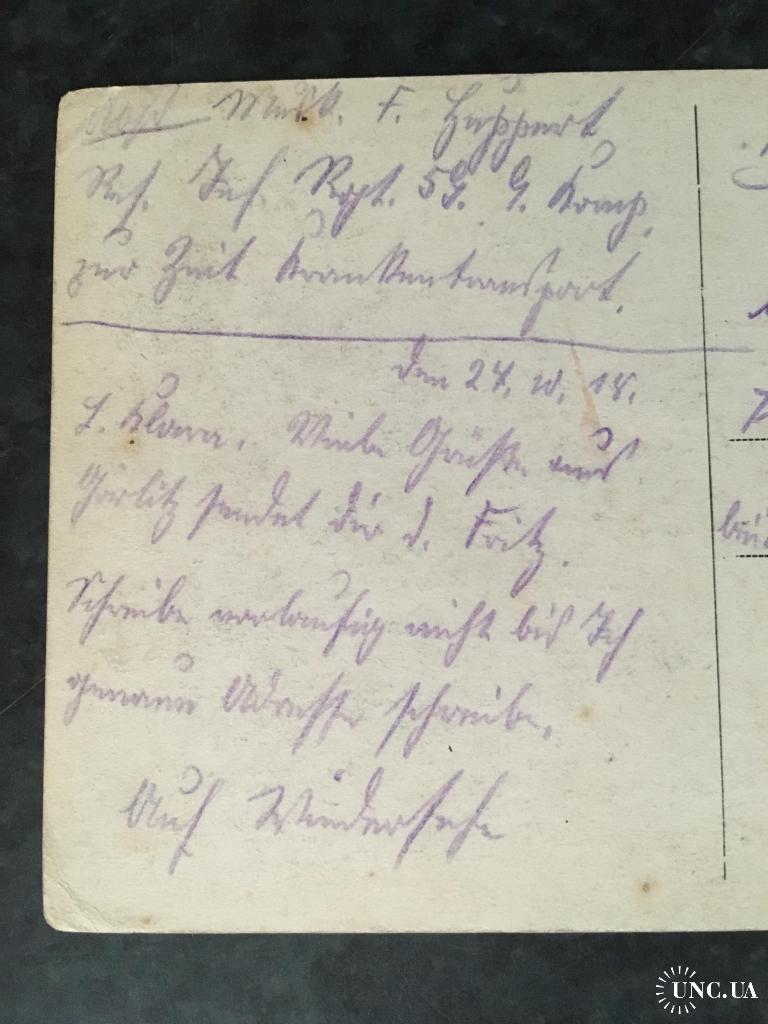 Musk. F. Huppert
Res. Inf. Rgt. 59. 9. Komp.
zur Zeit Krankentransport.
den 27. 10. 18.
L. Klara. Viele Grüße aus
Görlitz sendet dir d. Fritz.
Schreibe vorläufig nicht bis Ich
genaue Adresse schreibe.
Auf Wiedersehn
UNC.UA